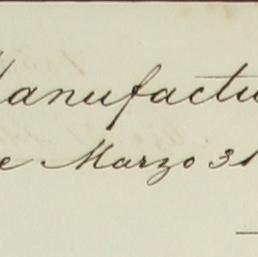 Manufactu
e Marzo 31